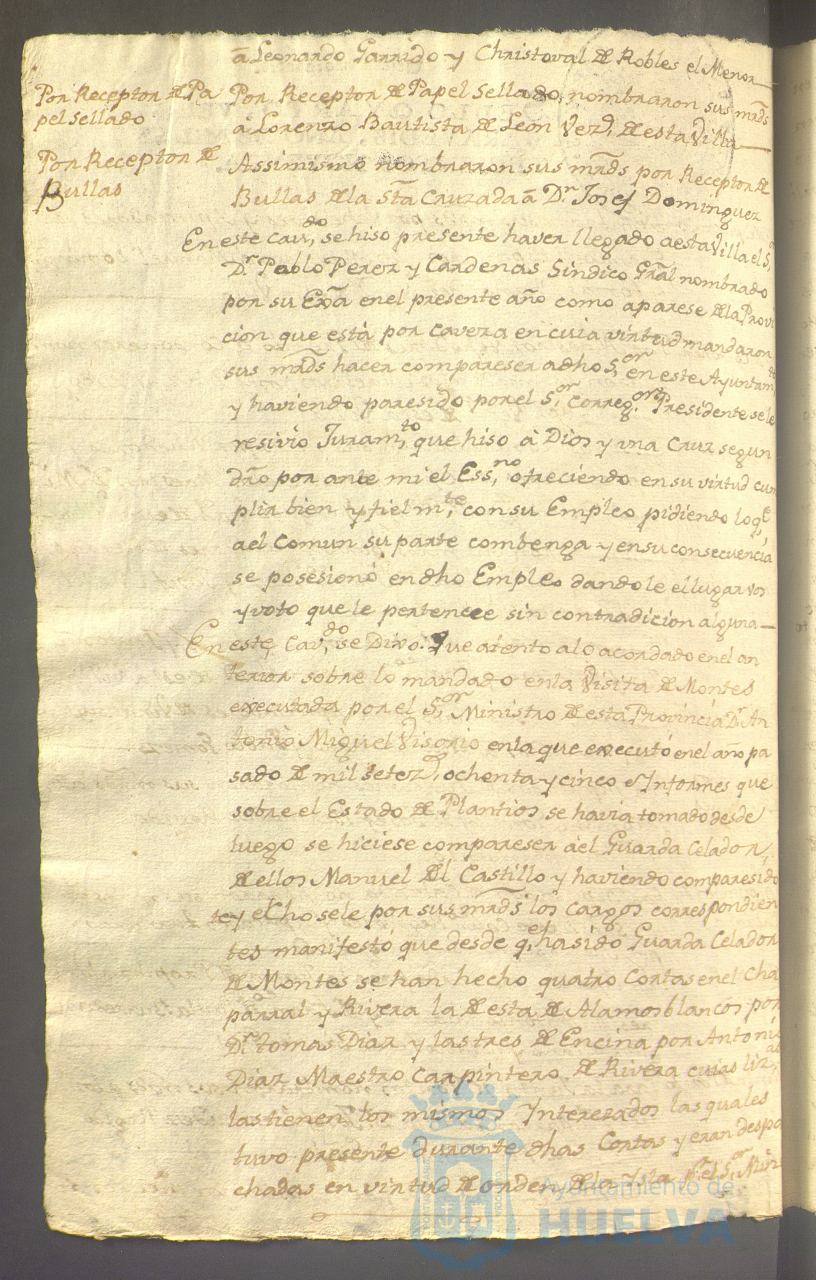 â Leonardo Garrido y Christoval de Robles el Menor
Por Receptor de Pa
pel sellado
Por Receptor de Papel sellado, nombraron sus mrds
â Lorenzo Bautista de Leon Vez.º de esta Villa
Por Receptor de
Bullas
Assimismo nombraron sus mrds por Receptor de
Bullas de la Sta Cruzada â Dn Josef Dominguez
En este cav.do se hiso presente haver llegado a esta Villa el S.r
Dn Pablo Perez y Cardenas Sindico Gral nombrado
por su Exa en el presente año como aparese de la Provi
cion que está por cavera en cuia virtud mandaron
sus mrds hacer compareser a dho S.or en este Ayuntam.to
y haviendo paresido por el S.or Correg.or Presidente se le
resivio Juram.to que hiso â Dios y una Cruz segun
dro por ante mi el Ess.no ofreciendo en su virtud cum
plir bien y fielm.te con su Empleo pidiendo lo q.e
a el Comun su parte combenga y en su consecuencia
se posesionó en dho Empleo dandole el lugar vos
y voto que le pertenece sin contradicion alguna
En este Cav.do se Dixo: Que atento a lo acordado en el an
terior sobre lo mandado en la Visita de Montes
executada por el S.or Ministro de esta Provincia Dn An
tonio Miguel Visorio en la que executó en el año pa
sado de mil setez.s ochenta y cinco è Informes que
sobre el Estado de Plantios se havia tomado desde
luego se hiciese compareser âel Guarda Celador
de ellos Manuel del Castillo y haviendo comparesido
y echosele por sus mrds los cargos correspondien
tes manifestó que desde q.e ha sido Guarda Celador
de Montes se han hecho quatro Cortas en el Cha
parral y Rivera la de esta de Alamos blancos por
Dn Tomas Diaz y las tres de Encina por Antonio
Diaz Maestro Carpintero de Rivera cuias liz.as
las tienen los mismos Interezados las quales
tuvo presente durante dhas Cortas y eran despa
chadas en virtud de orden de la Ysla p.r el S.or Min
Ayuntamiento de
HUELVA